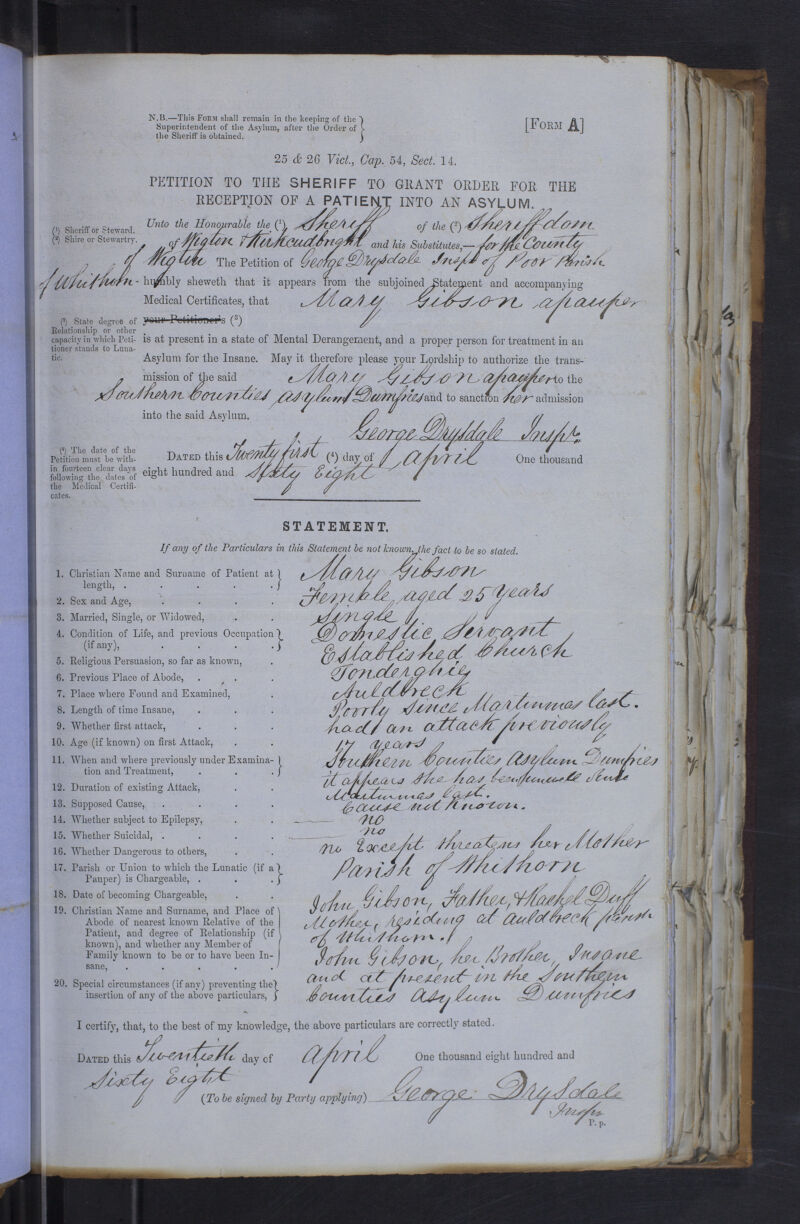 N.B.—This Form shall remain in the keeping of the
Superintendent of the Asylum, after the Order of
the Sheriff is obtained.
[Form A]
25 & 26 Vict., Cap. 54, Sect. 14.
PETITION TO THE SHERIFF TO GRANT ORDER FOR THE
RECEPTION OF A PATIENT INTO AN ASYLUM.
(¹) Sheriff or Steward.
(²) Shire or Stewartry.
Unto the Honourable the (¹) Sheriff of the (²) Sheriffdom
of Wigton & Kirkcudbright and his Substitutes,— for the County
of Wigton The Petition of George Drysdale Inspr of Poor Parish
of Whithorn - humbly sheweth that it appears from the subjoined Statement and accompanying
Medical Certificates, that Mary Gibson a pauper
(³) State degree of
Relationship or other
capacity in which Peti-
tioner stands to Luna-
tic.
your Petitioner's (³)
is at present in a state of Mental Derangement, and a proper person for treatment in an
Asylum for the Insane. May it therefore please your Lordship to authorize the trans-
mission of the said Mary Gibson a pauper to the
Southern Counties asylum Dumfries and to sanction her admission
into the said Asylum.
George Drysdale Inspr.
(⁴) The date of the
Petition must be with-
in fourteen clear days
following the dates of
the Medical Certifi-
cates.
Dated this Twenty first (⁴) day of April One thousand
eight hundred and Sixty Eight
STATEMENT.
If any of the Particulars in this Statement be not known, the fact to be so stated.
1. Christian Name and Surname of Patient at length, . Mary Gibson
2. Sex and Age, . Female, aged 25 years
3. Married, Single, or Widowed, . Single
4. Condition of Life, and previous Occupation (if any), . Domestic Servant
5. Religious Persuasion, so far as known, . Established Church
6. Previous Place of Abode, . Tonderghie
7. Place where Found and Examined, . Auldbreck
8. Length of time Insane, . Poorly Since Martinmas last.
9. Whether first attack, . had an attack previously
10. Age (if known) on first Attack, . 17 years
11. When and where previously under Examina-tion and Treatment, . Southern Counties Asylum Dumfries
12. Duration of existing Attack, . it appears she has been unwell Since
Martinmas last.
13. Supposed Cause, . Cause not known.
14. Whether subject to Epilepsy, . no
15. Whether Suicidal, . no
16. Whether Dangerous to others, . no Except threatens her Mother
17. Parish or Union to which the Lunatic (if a Pauper) is Chargeable, . Parish of Whithorn
18. Date of becoming Chargeable, .
19. Christian Name and Surname, and Place of
Abode of nearest known Relative of the
Patient, and degree of Relationship (if
known), and whether any Member of
Family known to be or to have been In-
sane, .
John Gibson, Father, & Rachel Duff
Mother, residing at auldbreck parish
of Whithorn.
John Gibson, her Brother, Insane
and at present in the Southern
Counties Asylum Dumfries
20. Special circumstances (if any) preventing the
insertion of any of the above particulars,
I certify, that, to the best of my knowledge, the above particulars are correctly stated.
Dated this Twentieth day of April One thousand eight hundred and
Sixty Eight
(To be signed by Party applying) George Drysdale
Inspr
P.p.